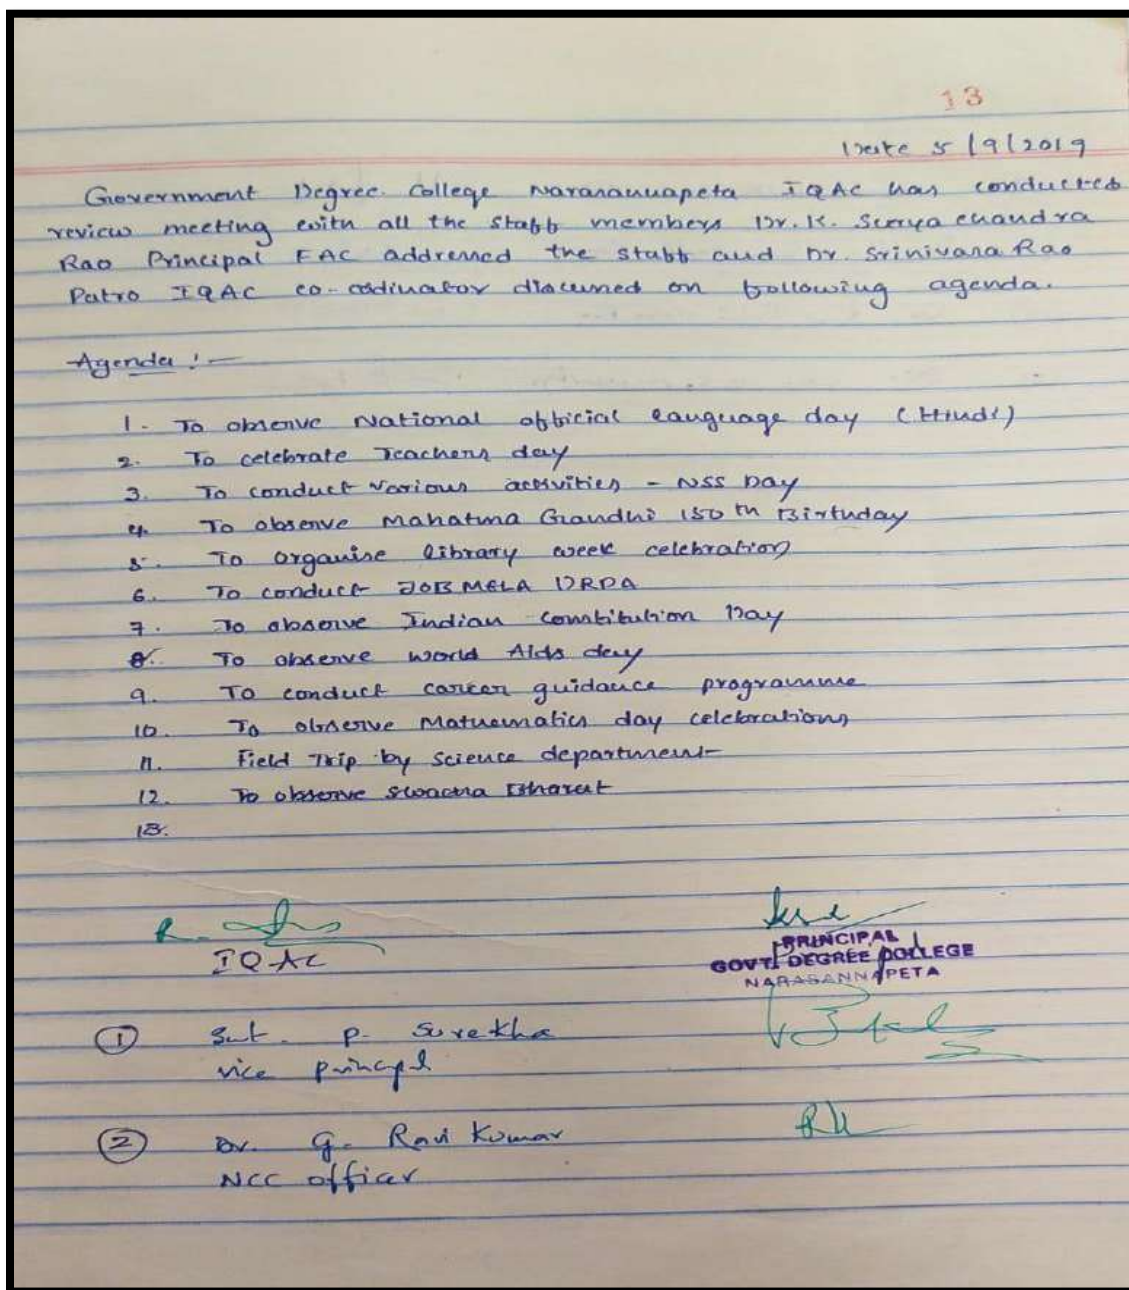 13
Date 5/9/2019
Government Degree College Narasannapeta IQAC has conducted
review meeting with all the staff members Dr. K. Surya chandra
Rao Principal FAC addressed the staff and Dr. Srinivasa Rao
Patro IQAC co-ordinator discussed on following agenda.
Agenda :-
1. To observe National official language day (Hindi)
2. To celebrate Teachers day
3. To conduct Various activities - NSS Day
4. To observe Mahatma Gandhi 150 th Birthday
5. To organise library week celebration
6. To conduct JOB MELA DRDA
7. To observe Indian Constitution Day
8. To observe World Aids day
9. To conduct career guidance programme
10. To observe Mathematics day celebrations
11. Field Trip by science department
12. To observe Swacha Bharat
13.
IQAC
PRINCIPAL
GOVT. DEGREE COLLEGE
NARASANNAPETA
1 Smt. P. Surekha
vice principal
2 Dr. G. Ravi Kumar
NCC officer